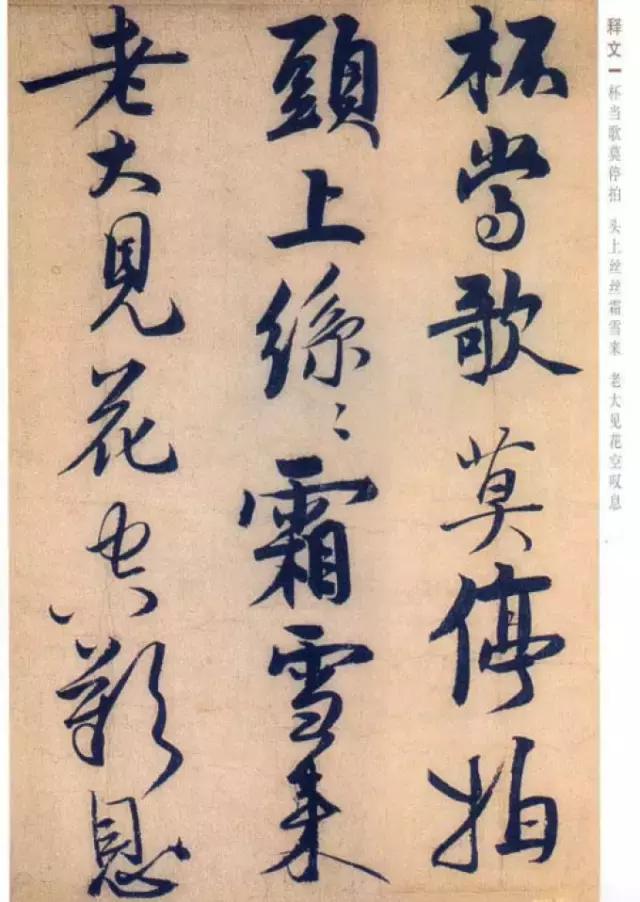 释文一 杯当歌莫停拍 头上丝丝霜雪来 老大见花空叹息
杯當歌莫停拍
頭上絲〻霜雪来
老大見花空歎息